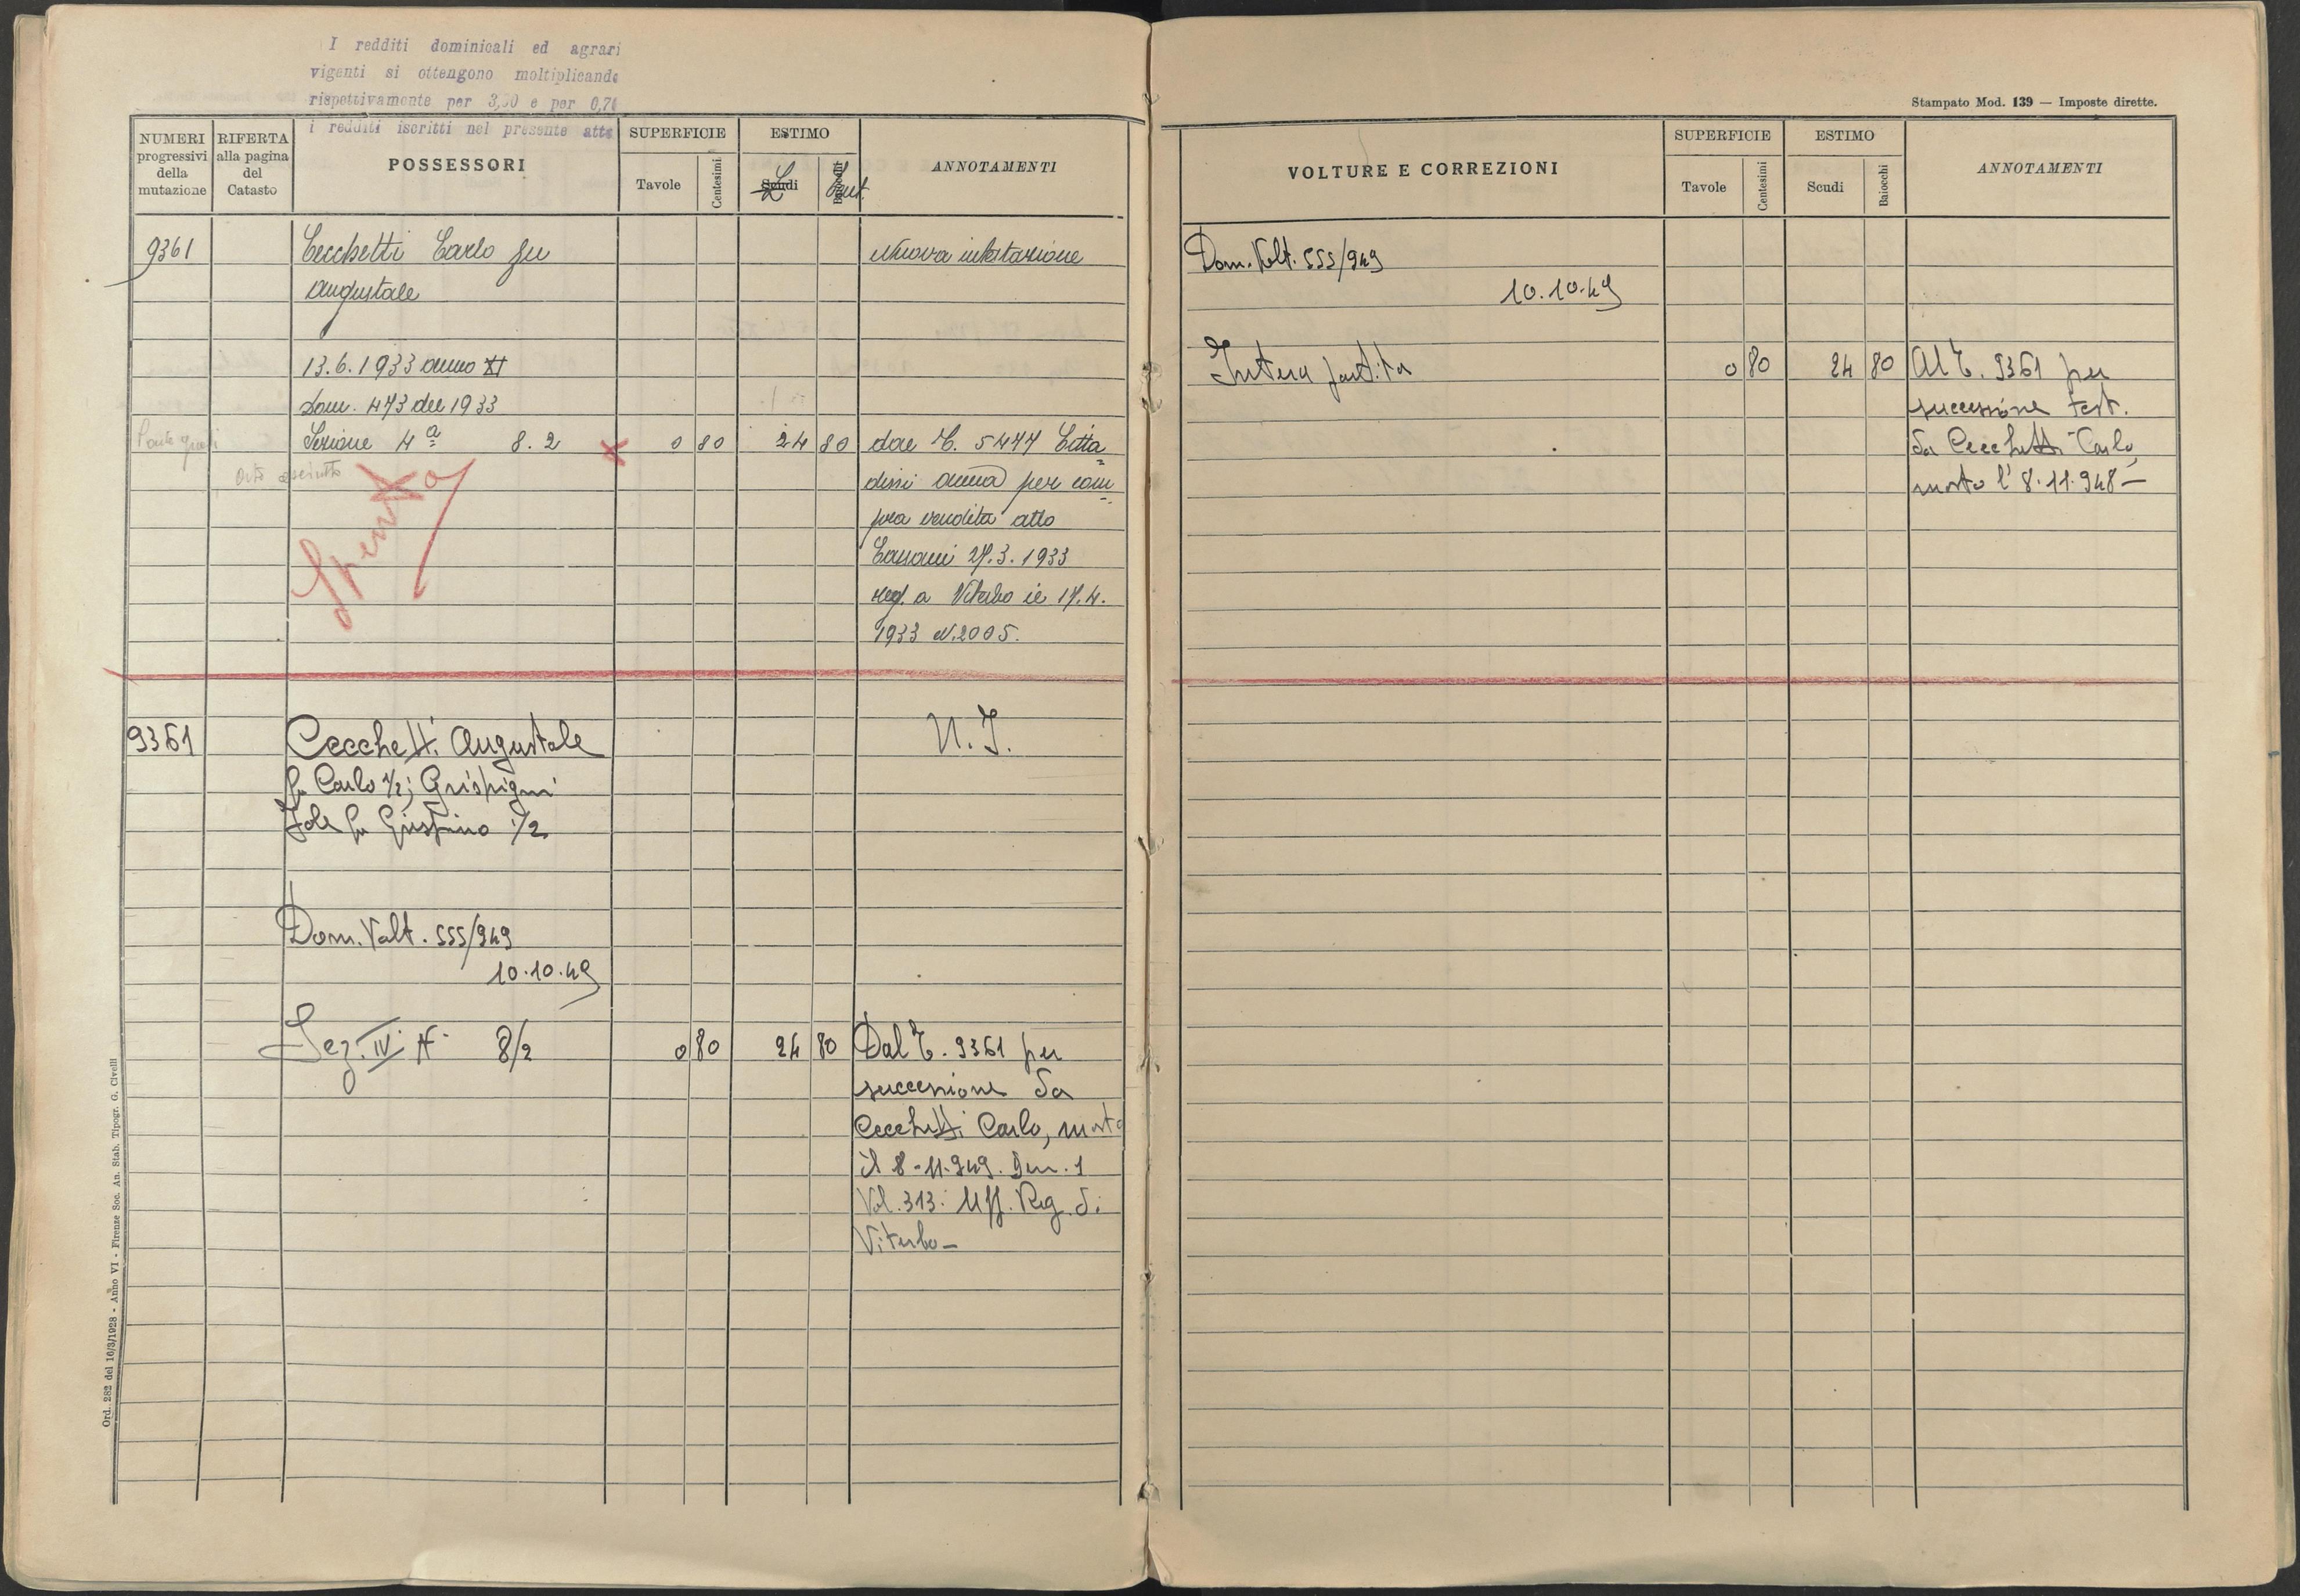 I redditi dominicali ed agrari
vigenti si ottengono moltiplicando
rispettivamente per 3,50 e per 0,70
i redditi iscritti nel presente atto
NUMERI progressivi della mutazione
RIFERTA alla pagina del Catasto
POSSESSORI
SUPERFICIE
Tavole
Centesimi
ESTIMO
Scudi
Baiocchi
ANNOTAMENTI
9361
Cecchetti Carlo fu
Augustale
Nuova intestazione
13.6.1933 anno XI
Dom. 473 del 1933
Sezione 4ª 8.2 0 80 24 80
dal C. 5477 Citta
dini Anna per com
pra vendita atto
Cassani 27.3.1933
reg. a Viterbo il 17.4.
1933 N.2005.
orto asciutto
Spenta
9361
Cecchetti Augustale
fu Carlo 1/2; Grispigni
Jole fu Giustino 1/2
N.I.
Dom. Volt. 555/949
10.10.49
Sez. IV N. 8/2 0 80 24 80
Dal C. 9361 per
successione da
Cecchetti Carlo, morto
il 8-11-949. Den. 1
Vol. 313. Uff. Reg. di
Viterbo—
Ord. 282 del 16/3/1928 - Anno VI - Firenze Soc. An. Stab. Tipogr. G. Civelli
Stampato Mod. 139 — Imposte dirette.
VOLTURE E CORREZIONI
SUPERFICIE
Tavole
Centesimi
ESTIMO
Scudi
Baiocchi
ANNOTAMENTI
Dom. Volt. 555/949
10.10.49
Intera partita 0 80 24 80
Al C. 9361 per
successione test.
da Cecchetti Carlo,
morto l'8.11.948—